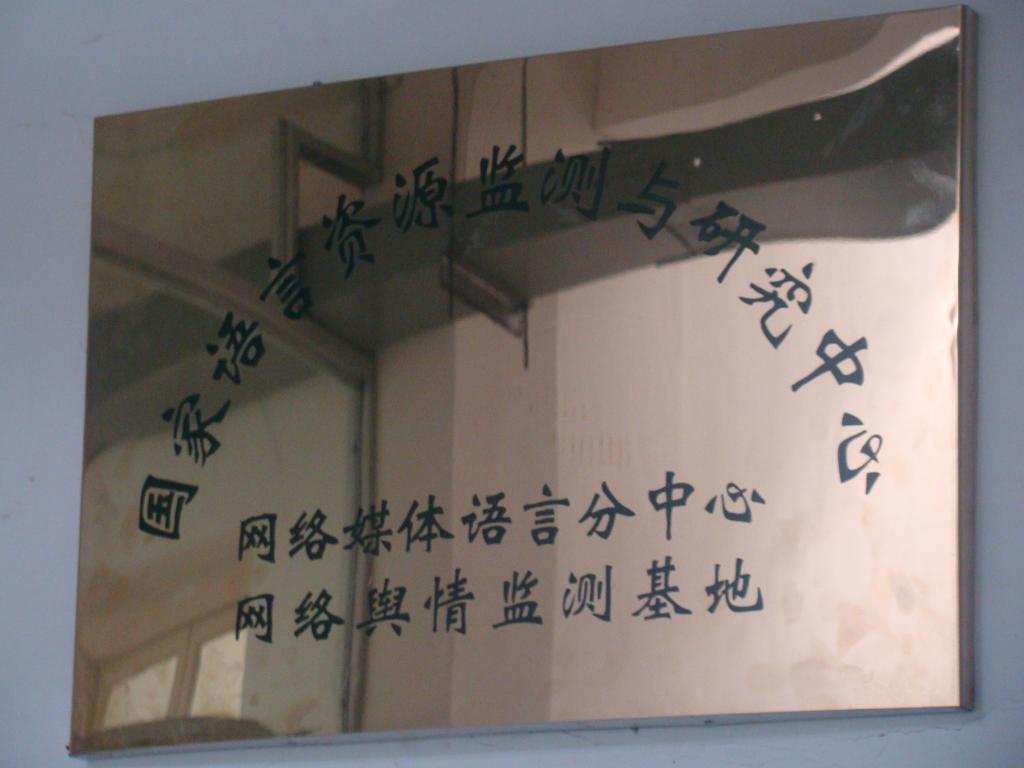 国家语言资源监测与研究中心
网络媒体语言分中心
网络舆情监测基地